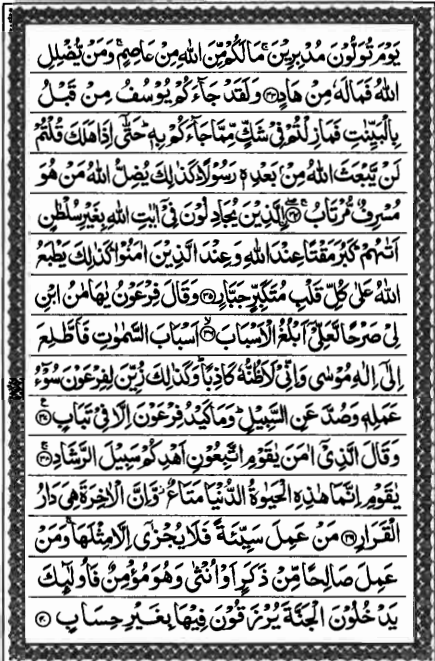 يَوْمَ تُوَلُّوْنَ مُدْبِرِيْنَ ۚ مَا لَكُمْ مِّنَ اللّٰهِ مِنْ عَاصِمٍ ۚ وَمَنْ يُّضْلِلِ
اللّٰهُ فَمَا لَهٗ مِنْ هَادٍ ﴿٣٣﴾ وَلَقَدْ جَآءَكُمْ يُوْسُفُ مِنْ قَبْلُ
بِالْبَيِّنٰتِ فَمَا زِلْتُمْ فِيْ شَكٍّ مِّمَّا جَآءَكُمْ بِهٖ ؕ حَتّٰٓى اِذَا هَلَكَ قُلْتُمْ
لَنْ يَّبْعَثَ اللّٰهُ مِنْۢ بَعْدِهٖ رَسُوْلًا ؕ كَذٰلِكَ يُضِلُّ اللّٰهُ مَنْ هُوَ
مُسْرِفٌ مُّرْتَابُ ﴿٣٤﴾ ۨالَّذِيْنَ يُجَادِلُوْنَ فِيْٓ اٰيٰتِ اللّٰهِ بِغَيْرِ سُلْطٰنٍ
اَتٰىهُمْ ؕ كَبُرَ مَقْتًا عِنْدَ اللّٰهِ وَعِنْدَ الَّذِيْنَ اٰمَنُوْا ؕ كَذٰلِكَ يَطْبَعُ
اللّٰهُ عَلٰى كُلِّ قَلْبِ مُتَكَبِّرٍ جَبَّارٍ ﴿٣٥﴾ وَقَالَ فِرْعَوْنُ يٰهَامٰنُ ابْنِ
لِيْ صَرْحًا لَّعَلِّيْٓ اَبْلُغُ الْاَسْبَابَ ﴿٣٦﴾ اَسْبَابَ السَّمٰوٰتِ فَاَطَّلِعَ
اِلٰٓى اِلٰهِ مُوْسٰى وَاِنِّيْ لَاَظُنُّهٗ كَاذِبًا ؕ وَكَذٰلِكَ زُيِّنَ لِفِرْعَوْنَ سُوْٓءُ
عَمَلِهٖ وَصُدَّ عَنِ السَّبِيْلِ ؕ وَمَا كَيْدُ فِرْعَوْنَ اِلَّا فِيْ تَبَابٍ ﴿٣٧﴾
وَقَالَ الَّذِيْٓ اٰمَنَ يٰقَوْمِ اتَّبِعُوْنِ اَهْدِكُمْ سَبِيْلَ الرَّشَادِ ﴿٣٨﴾
يٰقَوْمِ اِنَّمَا هٰذِهِ الْحَيٰوةُ الدُّنْيَا مَتَاعٌ ؗ وَّاِنَّ الْاٰخِرَةَ هِيَ دَارُ
الْقَرَارِ ﴿٣٩﴾ مَنْ عَمِلَ سَيِّئَةً فَلَا يُجْزٰٓى اِلَّا مِثْلَهَا ۚ وَمَنْ
عَمِلَ صَالِحًا مِّنْ ذَكَرٍ اَوْ اُنْثٰى وَهُوَ مُؤْمِنٌ فَاُولٰٓئِكَ
يَدْخُلُوْنَ الْجَنَّةَ يُرْزَقُوْنَ فِيْهَا بِغَيْرِ حِسَابٍ ﴿٤٠﴾